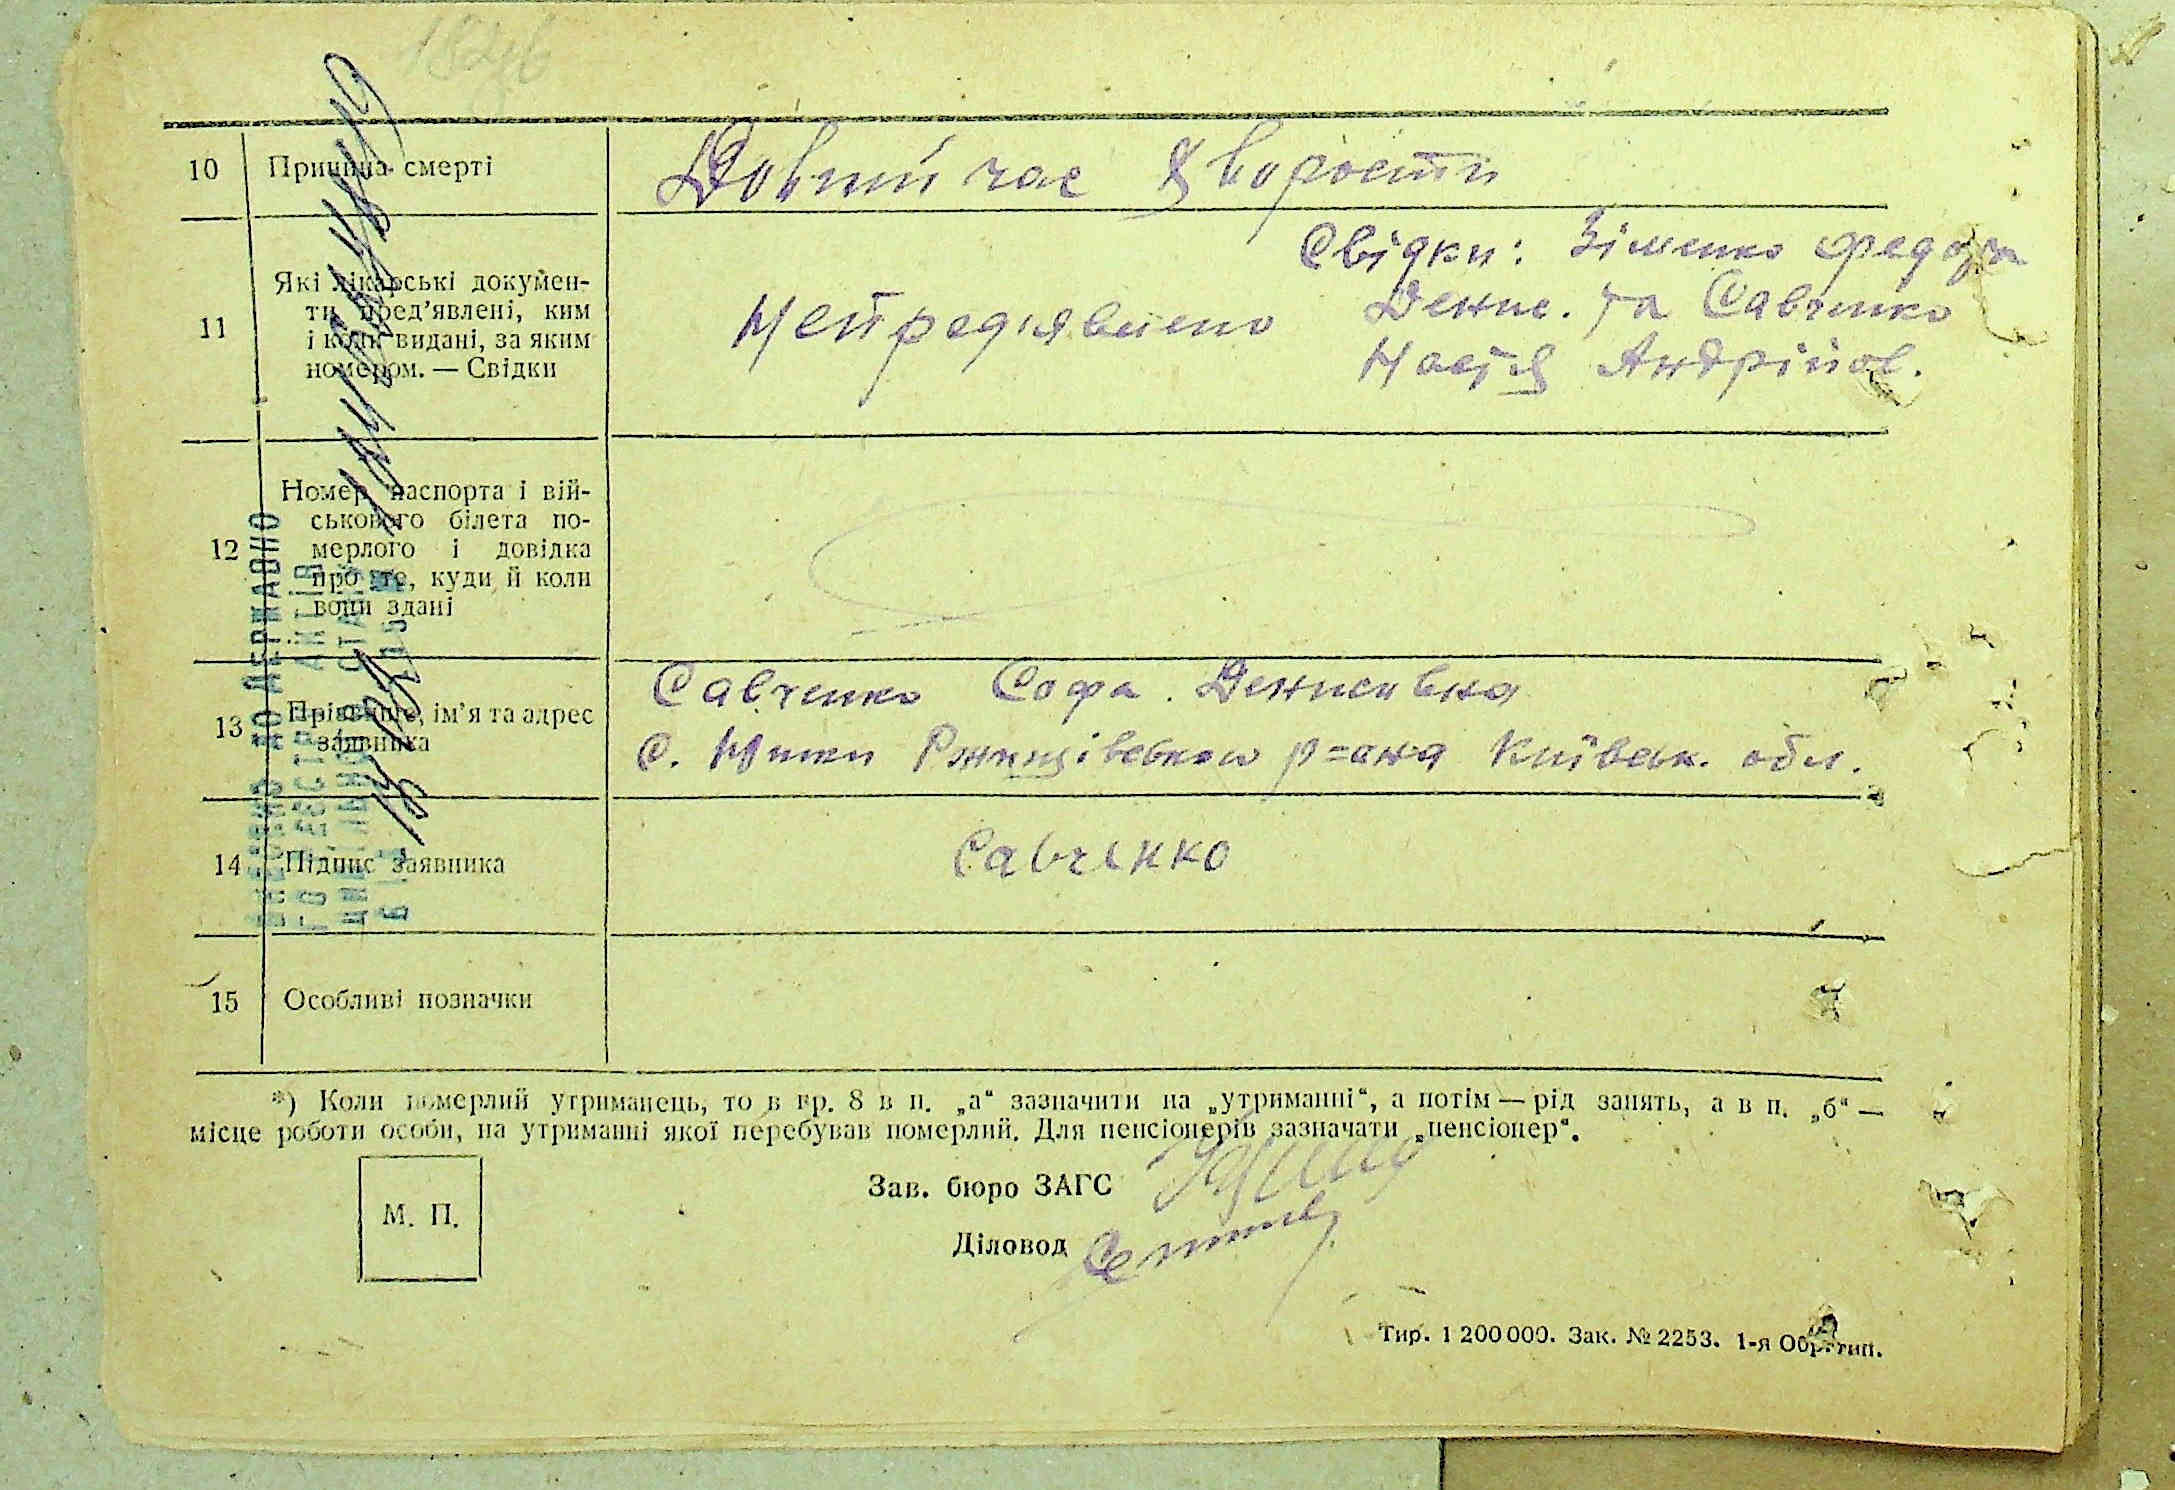 10 Причина смерті
Довгий час хворости
11 Які лікарські докумен-
ти пред’явлені, ким
і коли видані, за яким
номером. — Свідки
Непред'явлено
Свідки: Зіменко Федора
Денис. та Савченко
Настя Андрійов.
12 Номер паспорта і вій-
ськового білета по-
мерлого і довідка
про те, куди й коли
вони здані
13 Прізвище, ім’я та адрес
заявника
Савченко Софа. Денисівна
с. Юшки Ржищівського р=она Київськ. обл.
14 Підпис заявника
Савченко
15 Особливі позначки
*) Коли померлий утриманець, то в гр. 8 в п. „а“ зазначити на „утриманні“, а потім — рід занять, а в п. „б“ —
місце роботи особи, на утриманні якої перебував померлий. Для пенсіонерів зазначати „пенсіонер“.
М. П.
Зав. бюро ЗАГС
Діловод
Тир. 1 200 000. Зак. № 2253. 1-я Обр. тип.
ВНЕСЕНО ДО ДЕРЖАВНО